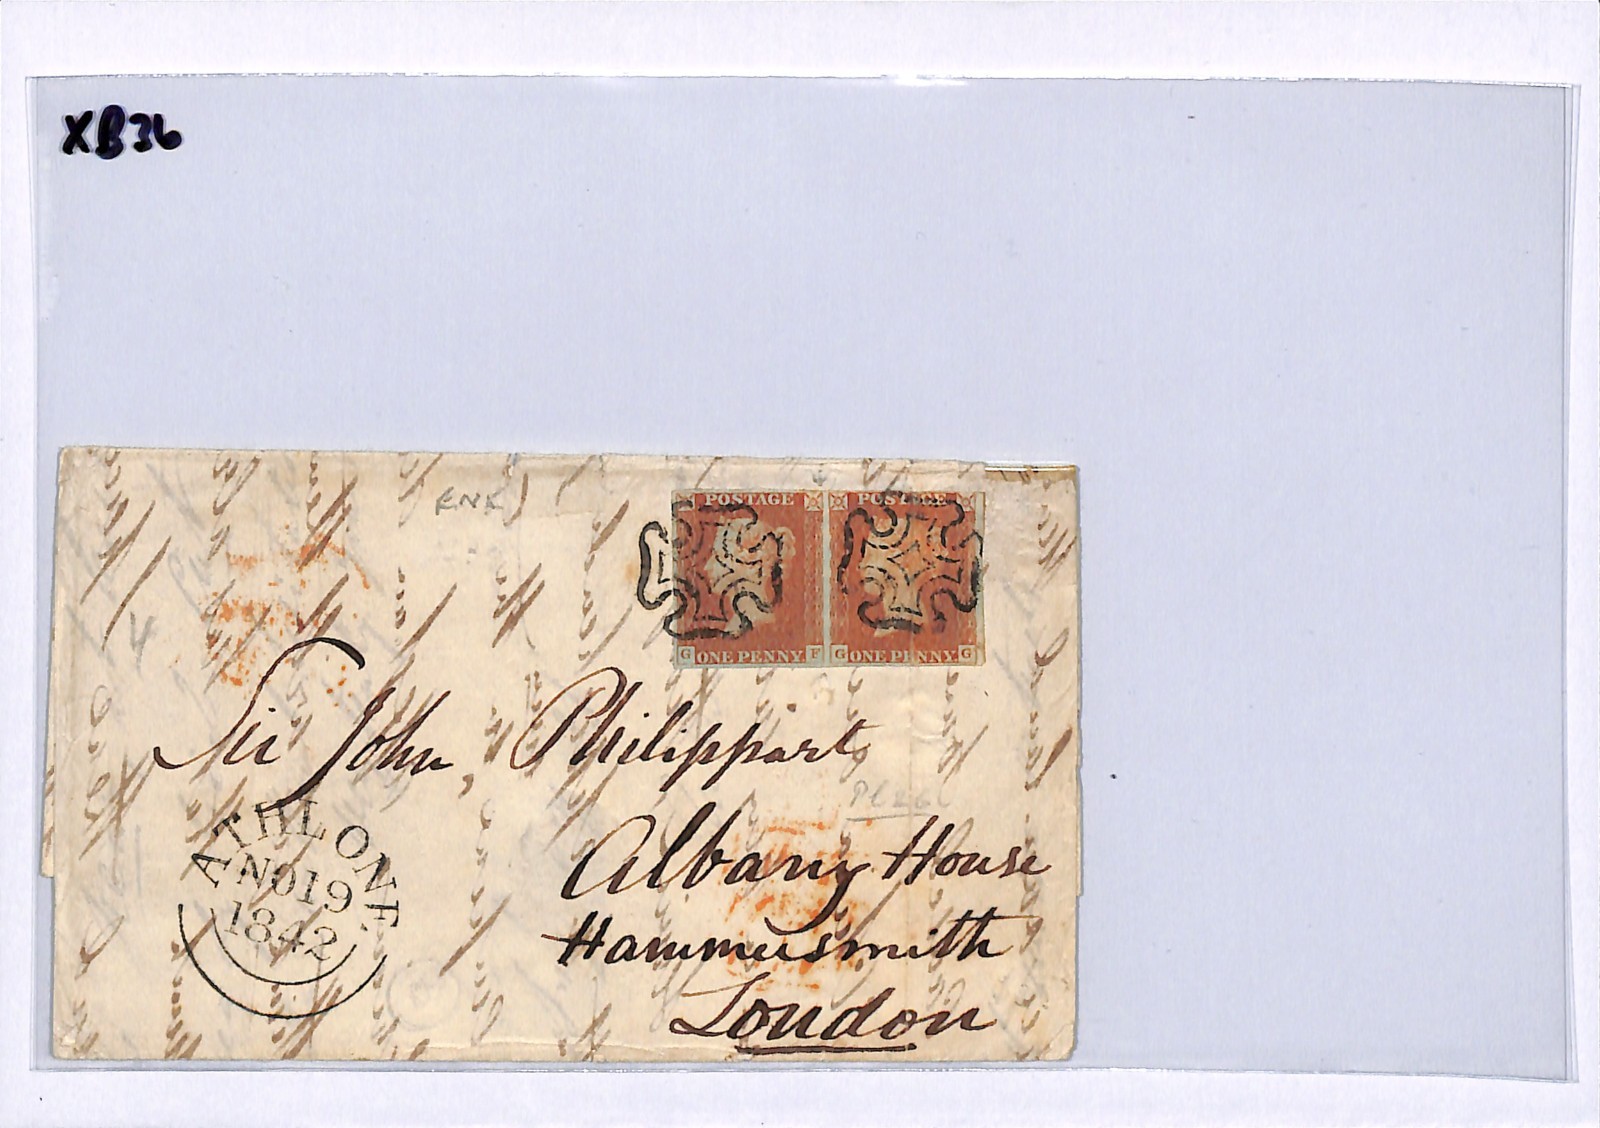 XB36
POSTAGE POSTAGE
G ONE PENNY. F G ONE PENNY. G
Sir John, Philippart
Albany House
Hammersmith
London
ATHLONE
NO 19
1842